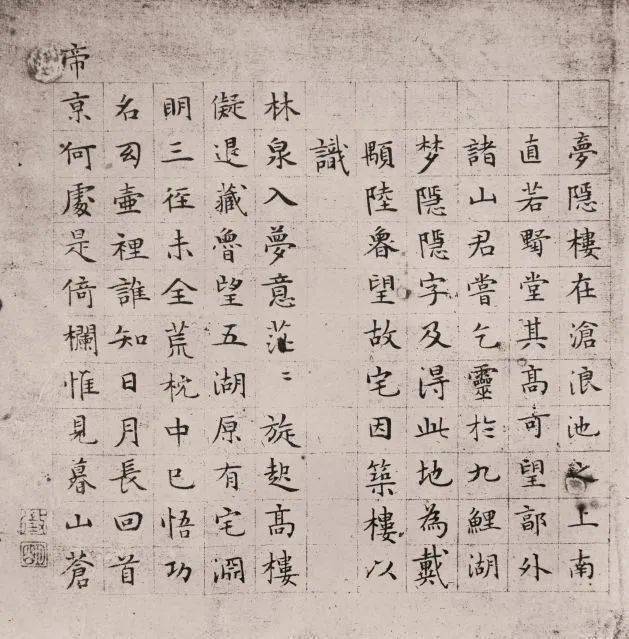 夢隠樓在滄浪池之上南
直若墅堂其髙可望郭外
諸山君嘗乞靈於九鯉湖
梦隠隠字及淂此地為戴
顒陸魯望故宅因築樓以
識
林泉入夢意茫〻旋起髙樓
儗退藏魯望五湖原有宅淵
明三徑未全荒枕中已悟功
名幻壷裡誰知日月長回首
帝京何處是倚欄惟見暮山蒼